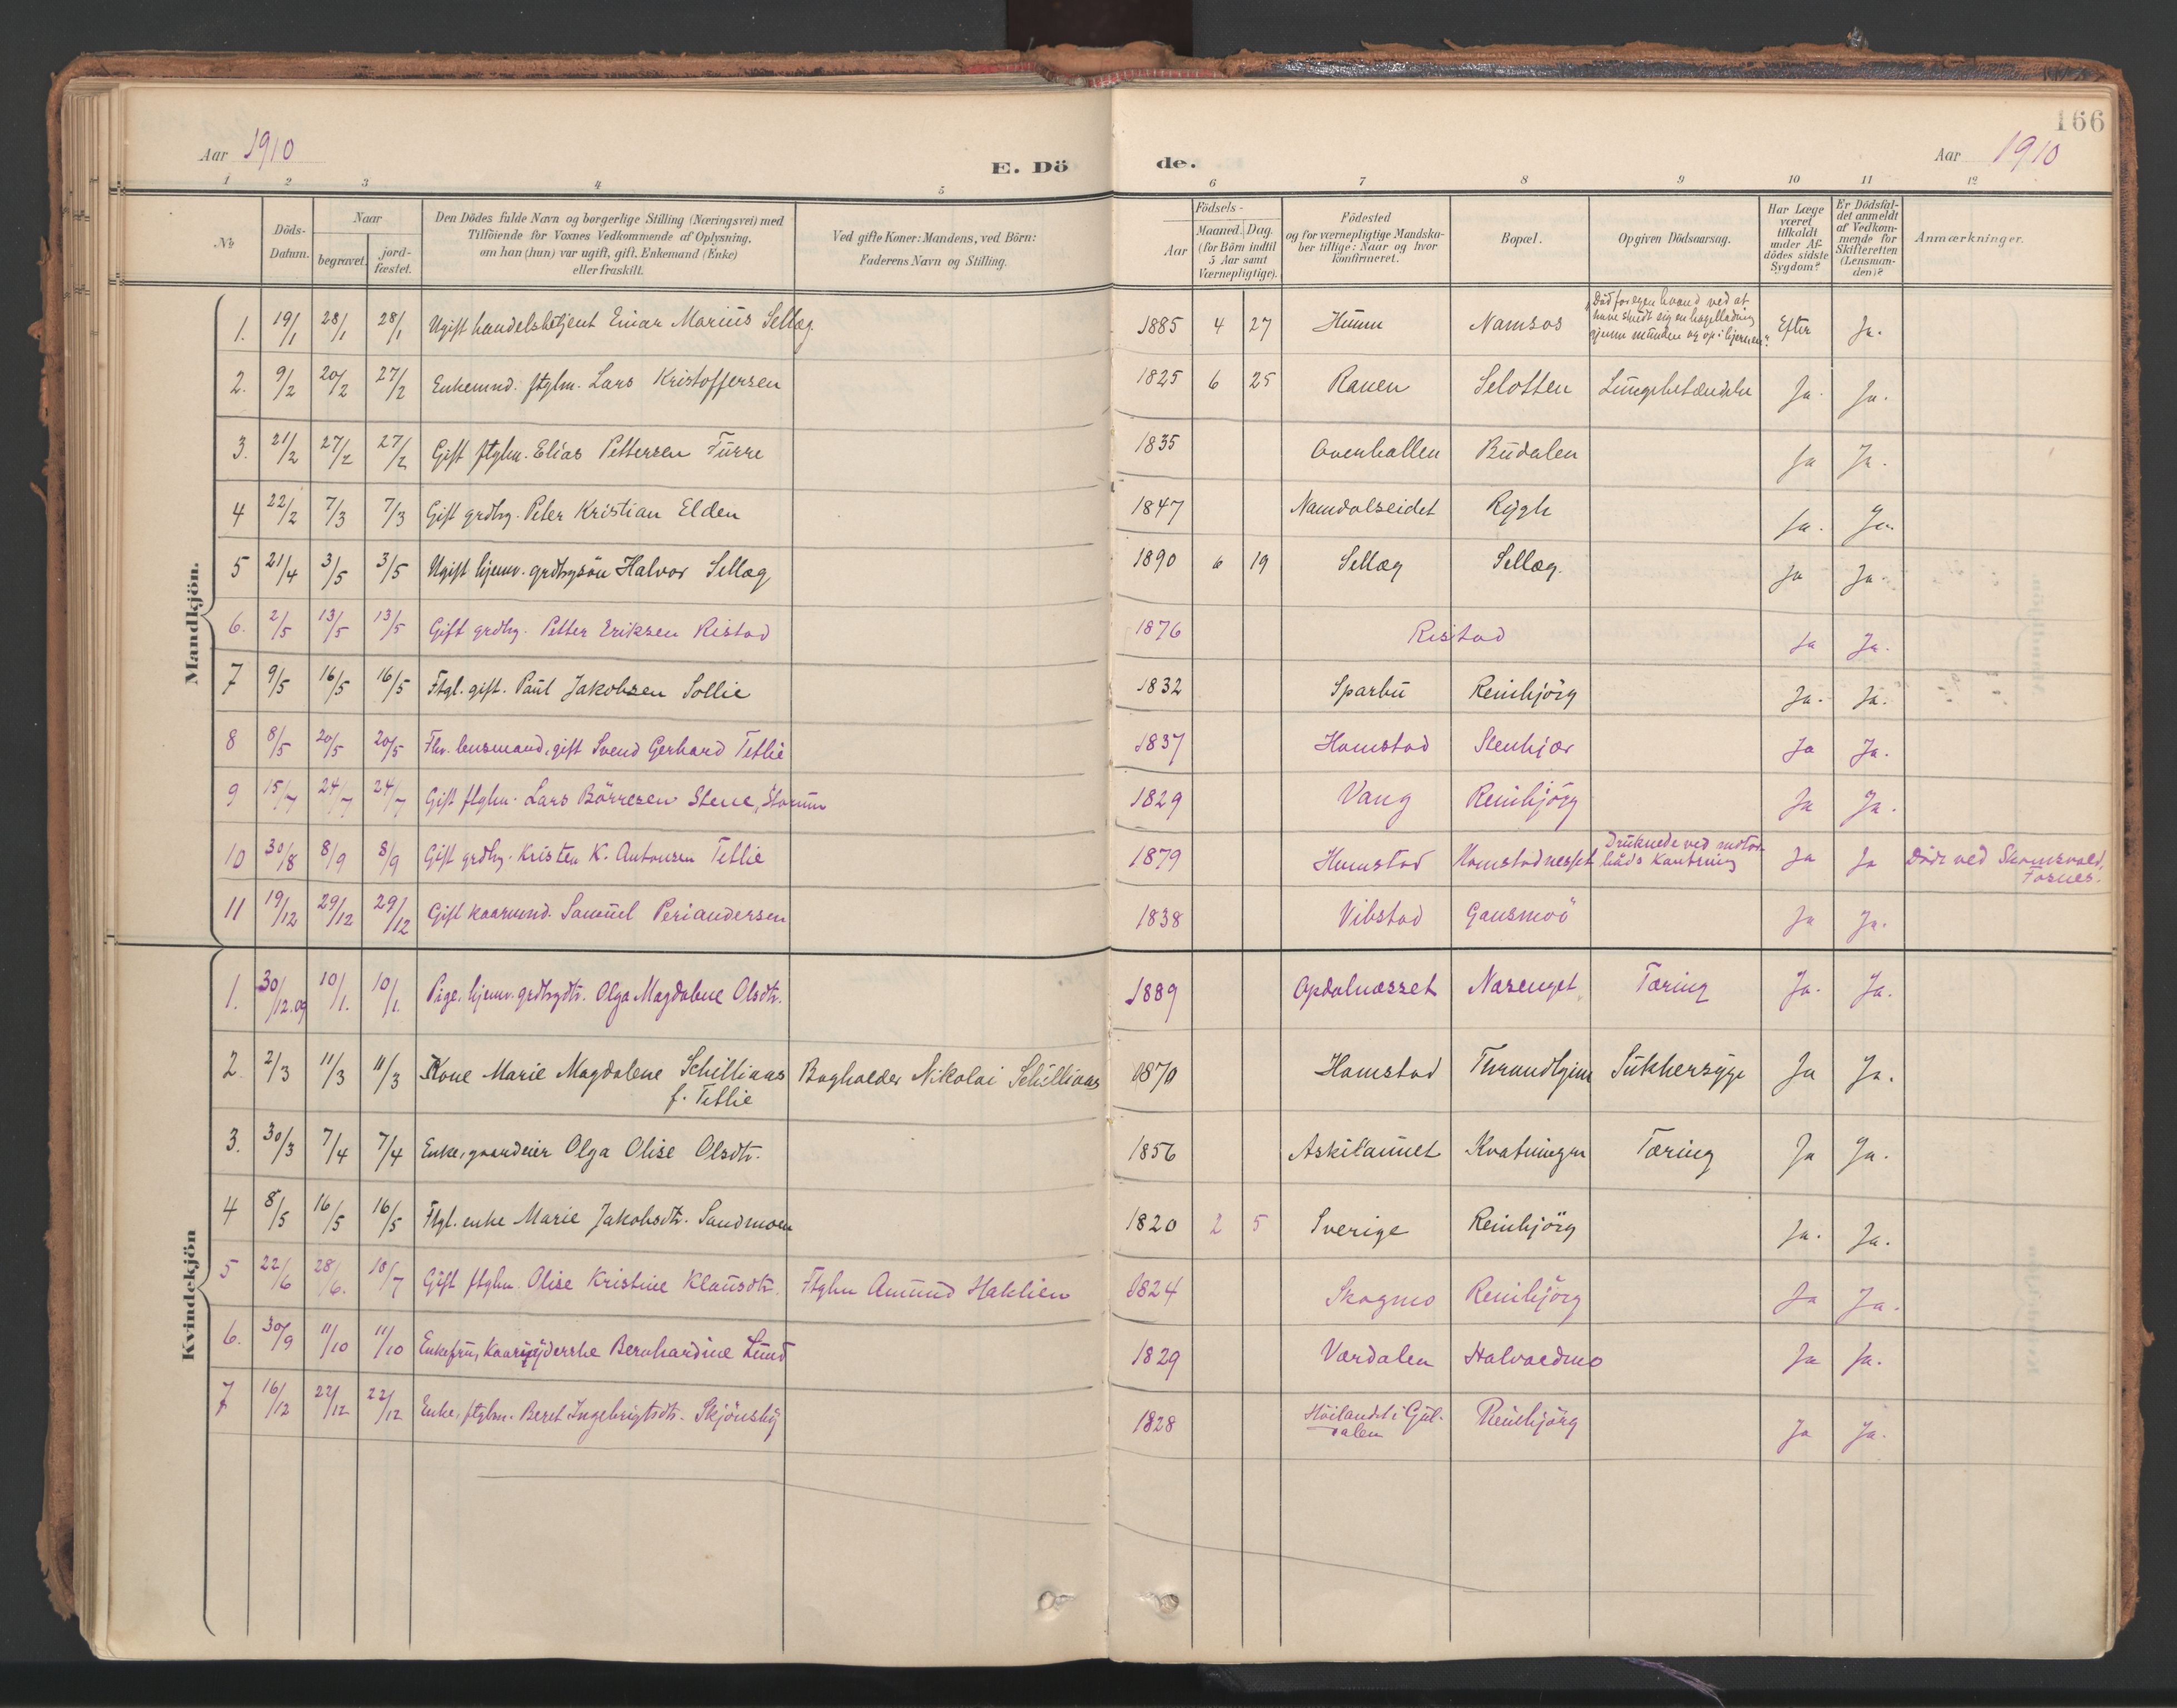 166
Aar 1910
E. Dö de.
Aar 1910
1 2 3 4 5 6 7 8 9 10 11 12
No
Döds-Datum.
Naar
begravet.
jord-fæstet.
Den Dödes fulde Navn og borgerlige Stilling (Næringsvei) med
Tilföiende for Voxnes Vedkommende af Oplysning,
om han (hun) var ugift, gift, Enkemand (Enke)
eller fraskilt.
Ved gifte Koner: Mandens, ved Börn:
Faderens Navn og Stilling.
Födsels-
Aar
Maaned. Dag.
(for Börn indtil
5 Aar samt
Værnepligtige).
Födested
og for værnepligtige Mandska-
ber tillige: Naar og hvor
konfirmeret.
Bopæl.
Opgiven Dödsaarsag.
Har Læge
været
tilkaldt
under Af-
dödes sidste
Sygdom?
Er Dödsfal-
det anmeldt
af Vedkom-
mende for
Skifteretten
(Lensman-
den)?
Anmærkninger.
Mandkjön.
1. 19/1 28/1 28/1 Ugift handelsbetjent Einar Marius Sellæg 1885 4 27 Humm Namsos "Död for egen haand ved at have skudt sig en hagelladning gjennem munden og op i hjernen". Efter Ja.
2. 9/2 20/2 27/2 Enkemnd. ftglm. Lars Kristoffersen 1825 6 25 Ranen Selotten Lungebetændelse Ja. Ja.
3. 21/2 27/2 27/2 Gift ftglm. Elias Pettersen Furre 1835 Overhallen Budalen Ja Ja.
4 22/2 7/3 7/3 Gift grdbr. Peter Kristian Elden 1847 Namdalseidet Rygh Ja. Ja.
5 21/4 3/5 3/5 Ugift hjemv. grdbrsön Halvor Sellæg 1890 6 19 Sellæg Sellæg. Ja Ja.
6. 2/5 13/5 13/5 Gift grdbr. Petter Eriksen Ristad 1876 Ristad Ja Ja.
7 9/5 16/5 16/5 Ftgl. gift. Paul Jakobsen Sollie 1832 Sparbu Reinbjörg Ja. Ja.
8 8/5 20/5 20/5 Fhv. lensmand, gift Svend Gerhard Tetlie 1837 Homstad Stenkjær Ja Ja.
9 15/7 24/7 24/7 Gift ftglm. Lars Börresen Stene, 1829 Vang Reinbjörg Ja Ja.
10 30/8 8/9 8/9 Gift grdbr. Kristen K. Antonsen Tetlie 1879 Homstad Homstadnesset Druknede ved motorbåds kantring Ja Ja Döde ved Fosnes.
11 19/12 29/12 29/12 Gift kaarmnd. Samuel Periandersen 1838 Vibstad Gansmoö Ja Ja.
Kvindekjön
1. 30/12.09 10/1. 10/1. Pige, hjemv. grdbrdtr. Olga Magdalene Olsdtr. 1889 Opdalnæsset Næsenget Tæring Ja. Ja.
2 2/3 11/3 11/3 Kone Marie Magdalene Schilliaas f. Tetlie Bogholder Nikolai Schilliaas 1870 Homstad Thrundhjem Sukkersyge Ja Ja.
3. 30/3 7/4 7/4 Enke, gaardeier Olga Olise Olsdtr. 1856 Askilaunet Kvatningen Tæring Ja Ja.
4 8/5 16/5 16/5 Ftgl. enke Marie Jakobsdtr. Sandmoen 1820 2 5 Sverige Reinbjörg Ja. Ja.
5 22/6 28/6. 10/7 Gift ftglm. Olise Kristine Klausdtr. Ftglm Amund Haklien 1824 Skogmo Reinbjörg Ja Ja.
6. 30/9 11/10 11/10 Enkefru, Bernhardine Lund 1829 Værdalen Halvardmo Ja Ja.
7 16/12 22/12 22/12 Enke, ftglm. Beret Ingebrigtsdtr. Skjönsby 1828 Höilandet i Guldalen Reinbjörg Ja Ja.